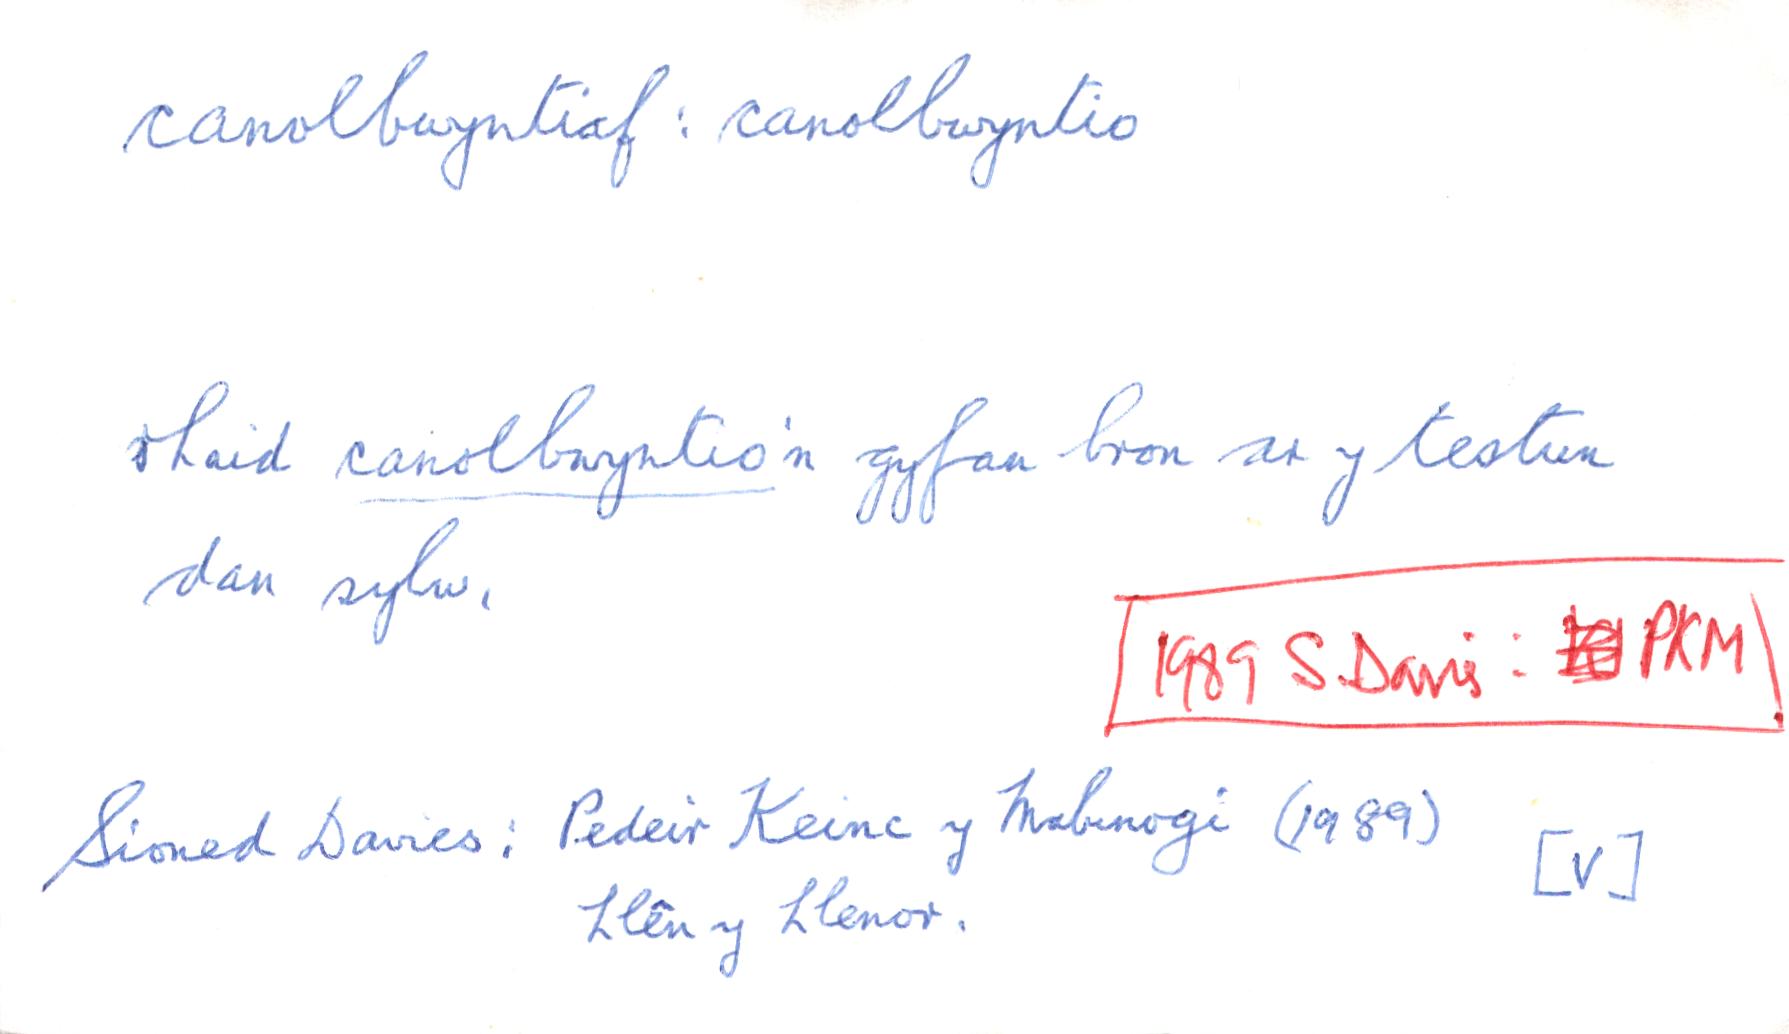 canolbwyntiaf : canolbwyntio
rhaid canolbwyntio'n gyfan bron ar y testun
dan sylw.
1989 S. Davies : PKM
Sioned Davies : Pedeir Keinc y Mabinogi (1989)
[V]
Llên y Llenor.